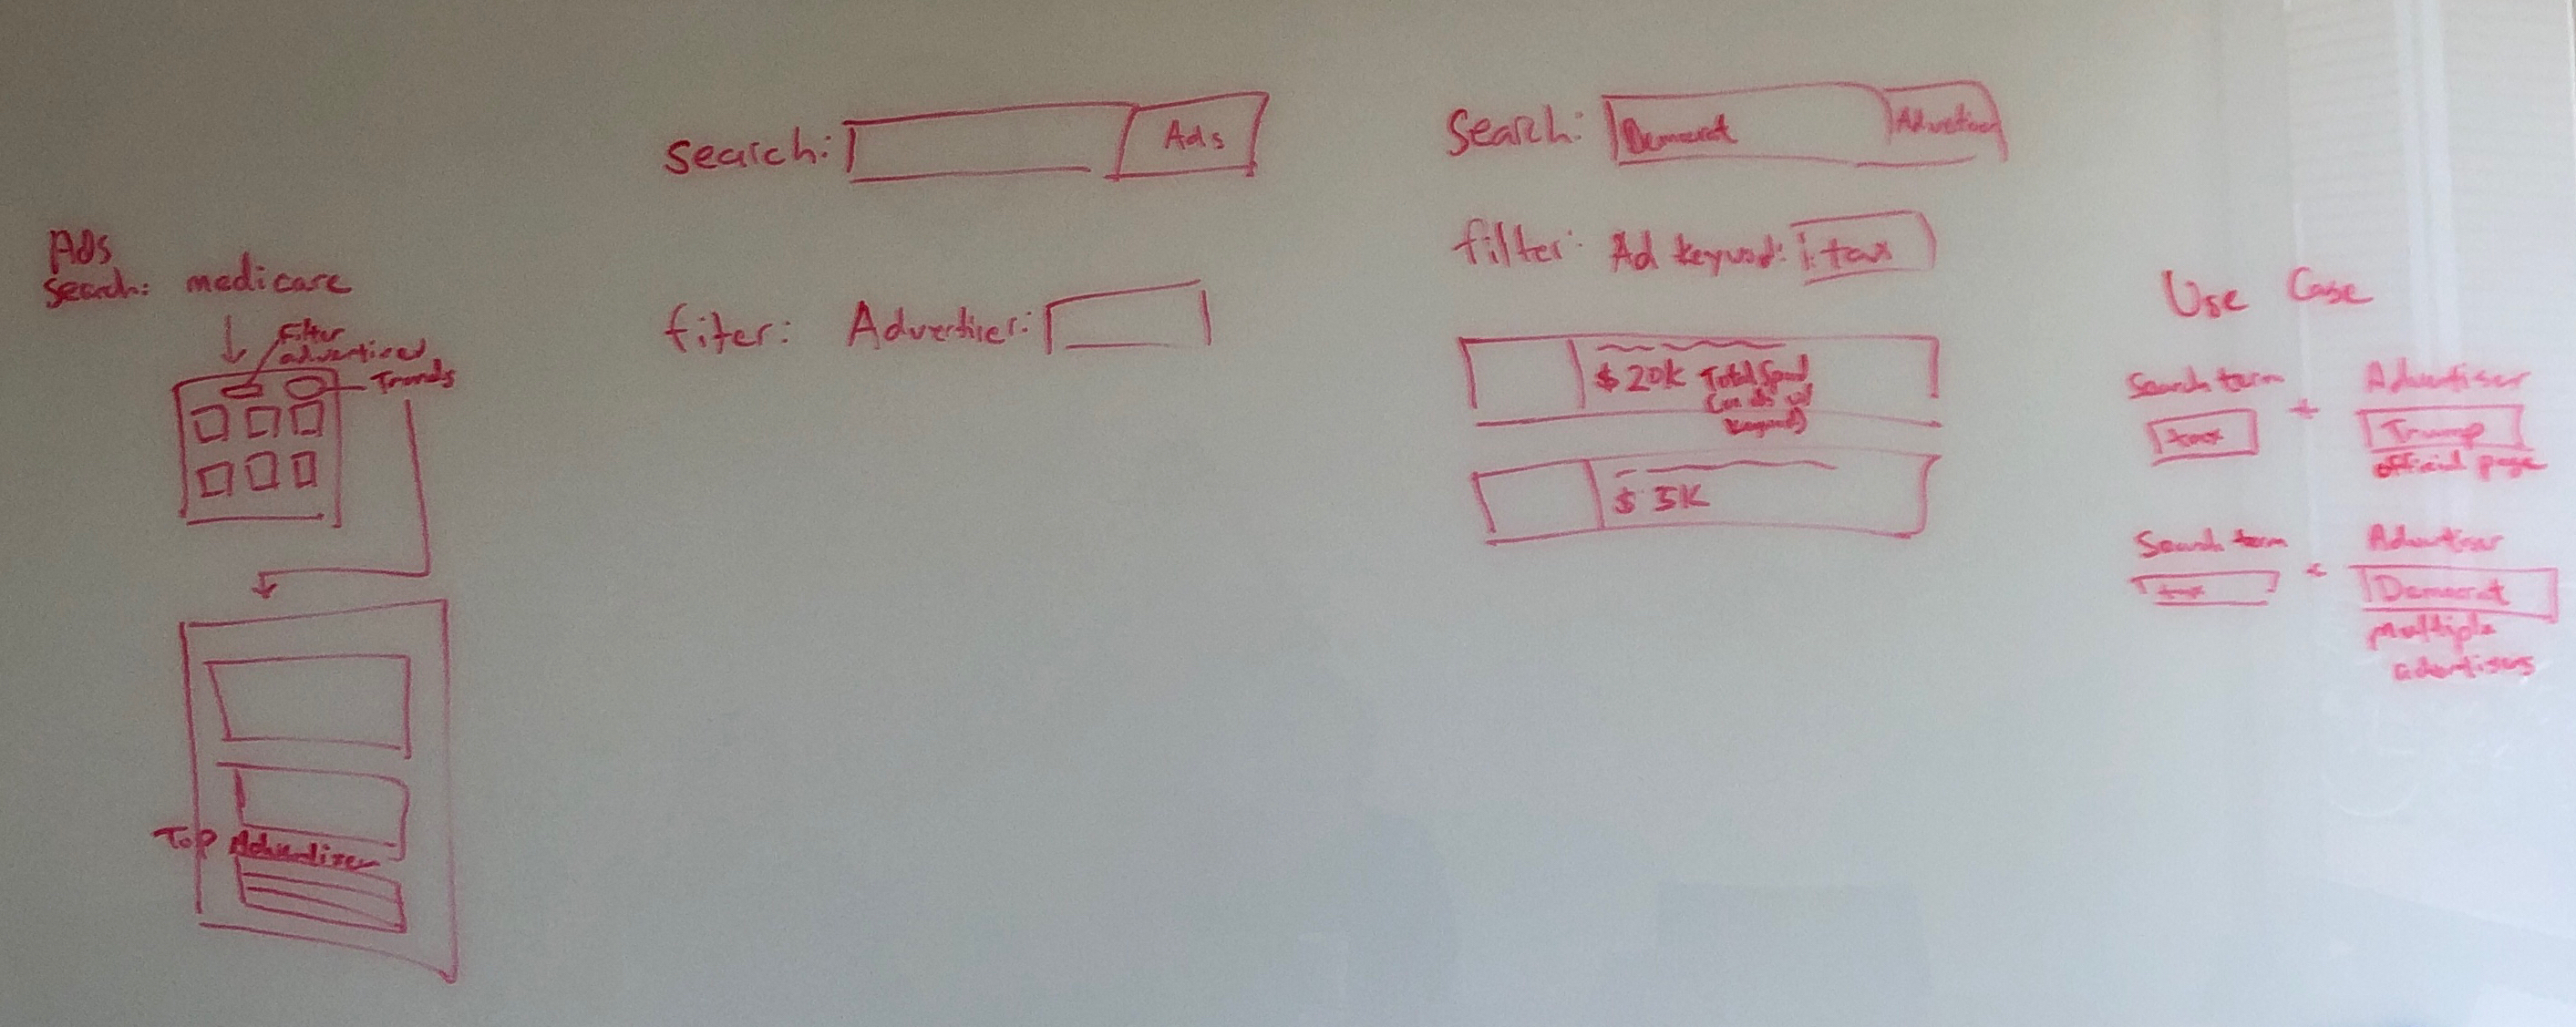 Ads
Search: medicare
Filter
advertiser
Trends
Top Advertiser
Search:
Ads
fiter: Advertiser:
Search: Democrat
filter: Ad keyword: tax
$ 20K Total Spend
keyword)
$ 5K
Use Case
Search term + Advertiser
tax Trump
official page
Search term + Advertiser
tax Democrat
multiple
advertisers